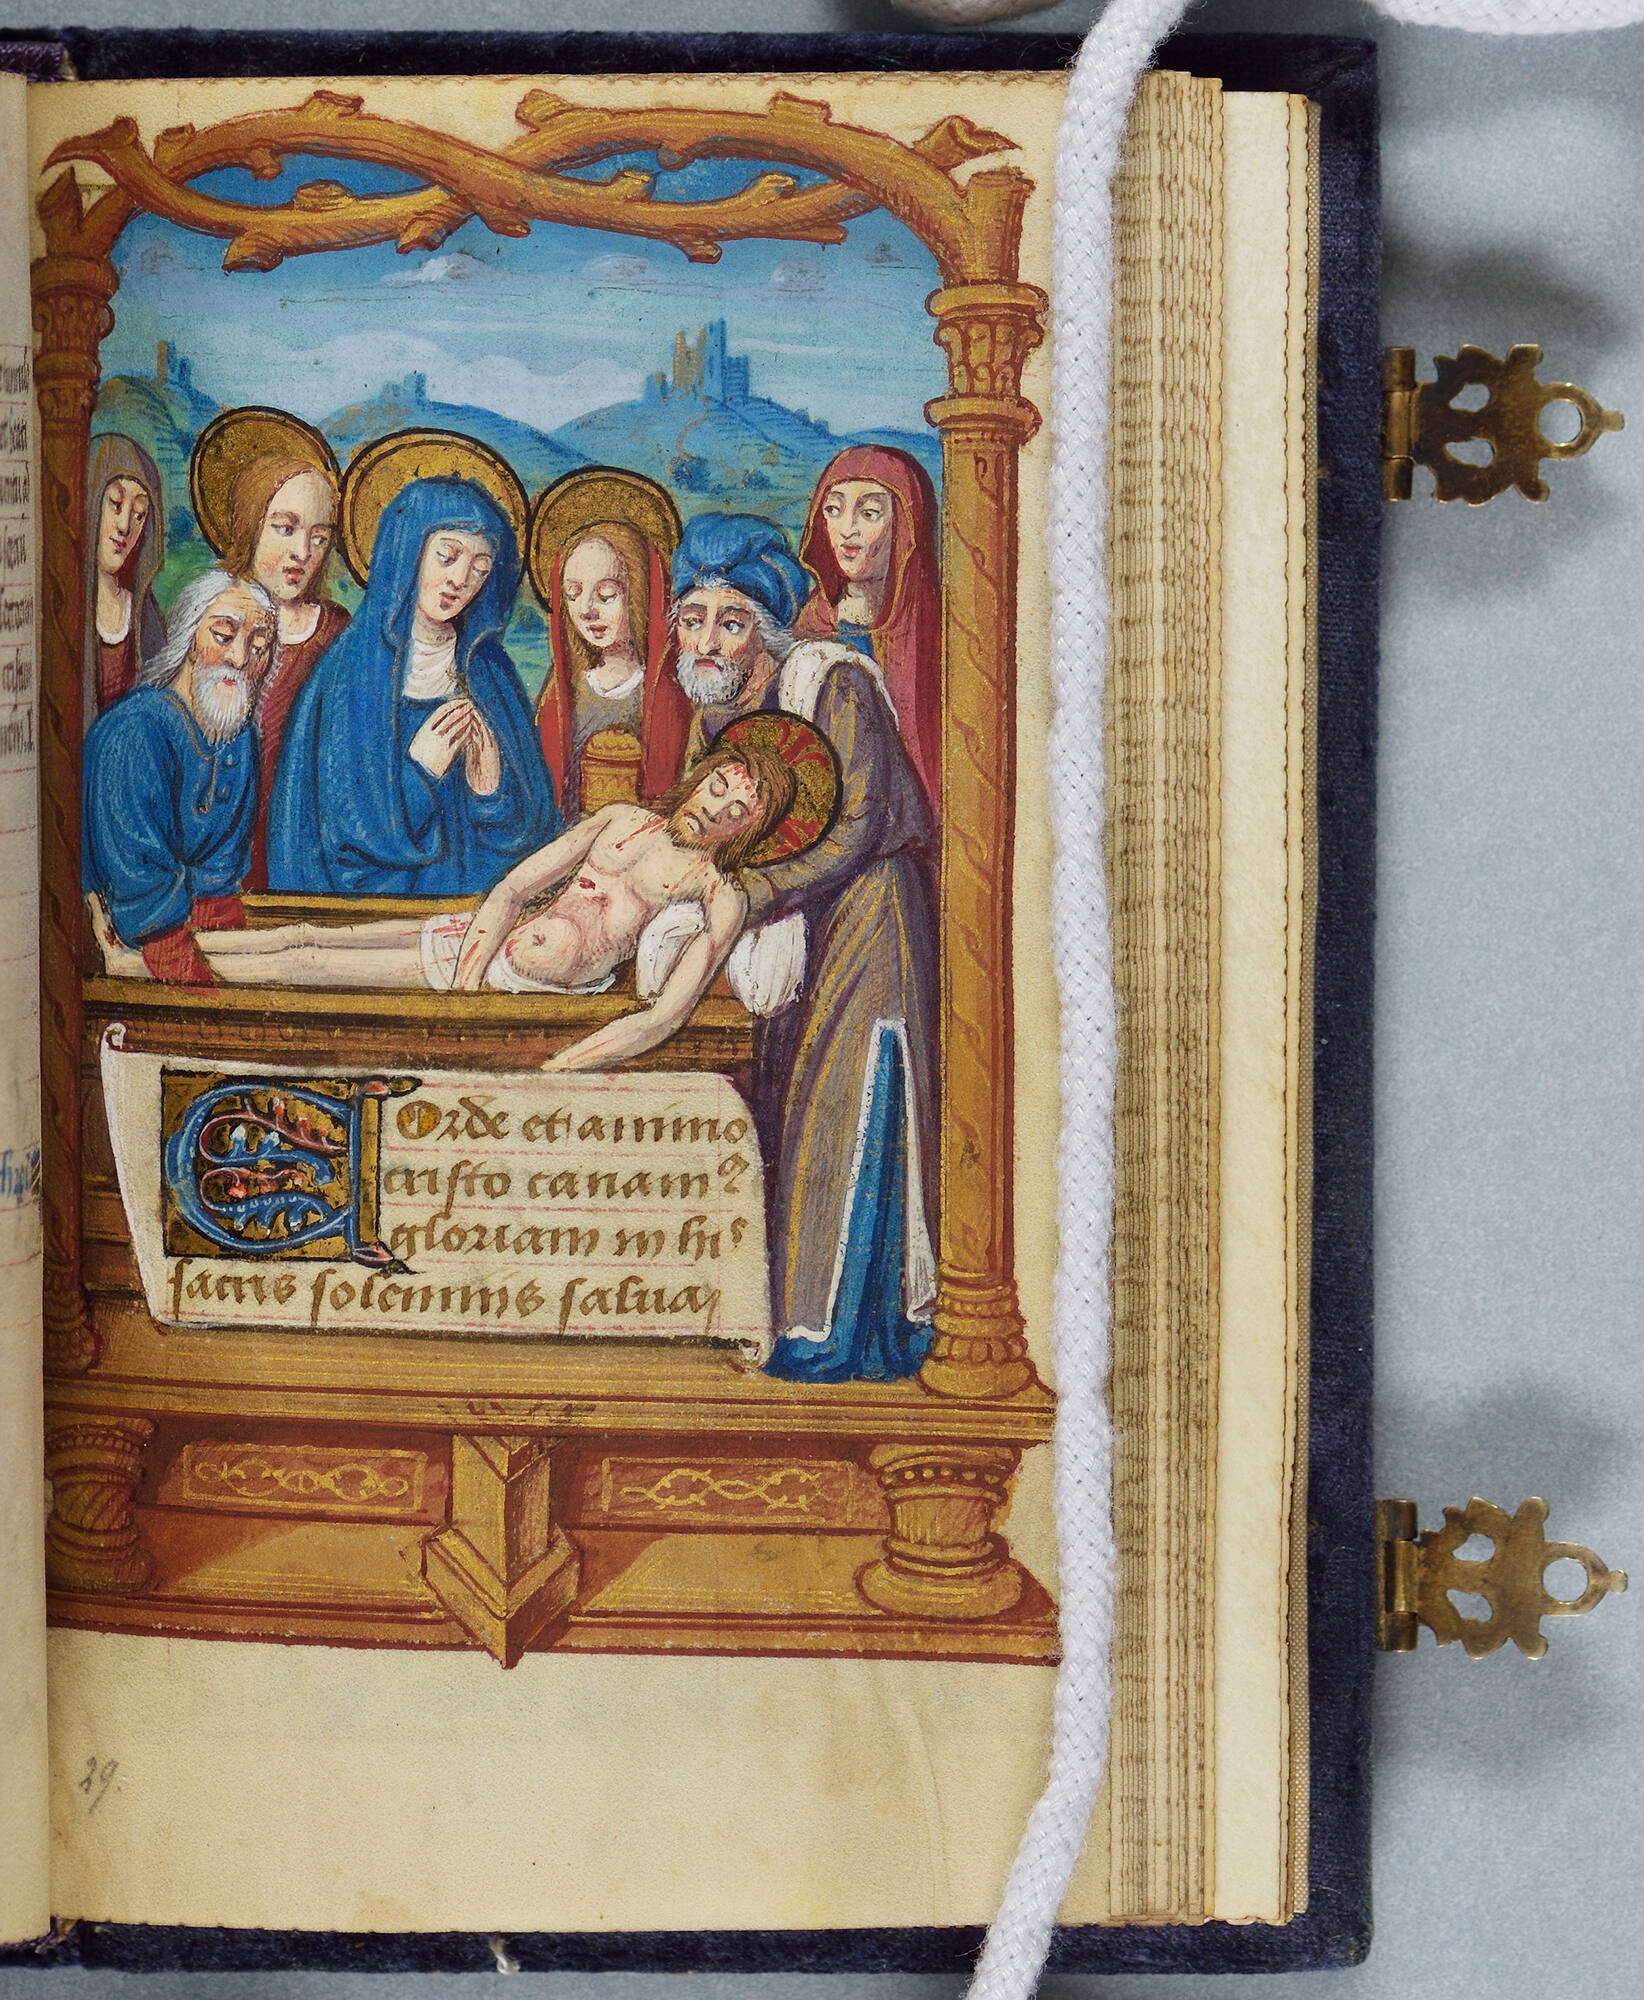 COrde et animo
cristo canamꝯ
gloriam in his
sacris solemniis salua
29.